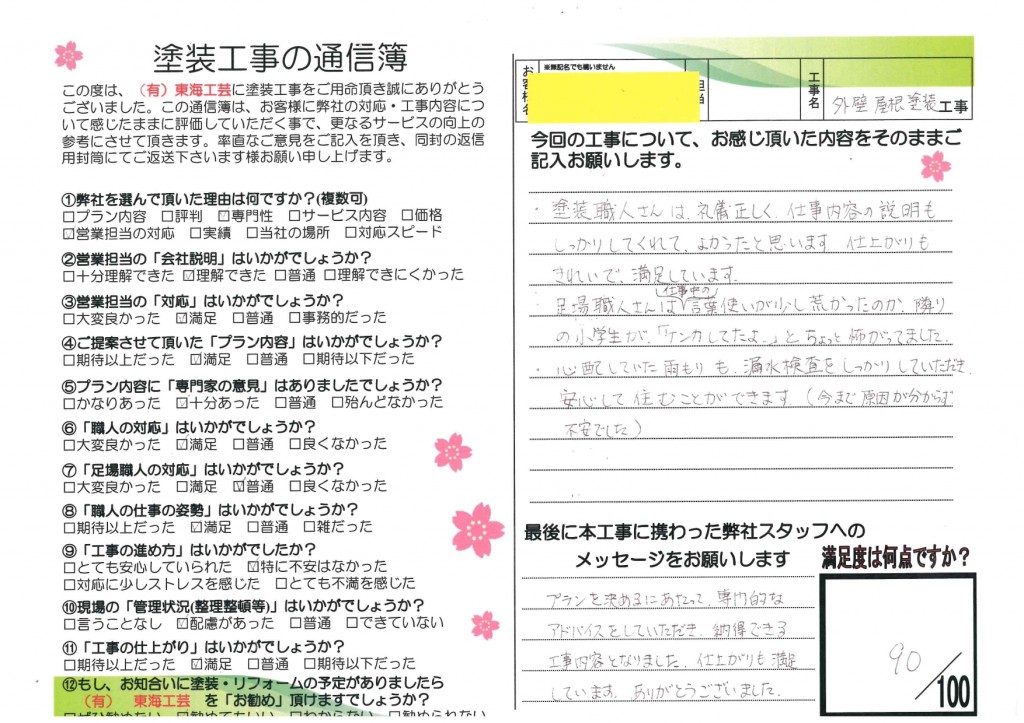 塗装工事の通信簿
この度は、(有)東海工芸に塗装工事をご用命頂き誠にありがとう
ございました。この通信簿は、お客様に弊社の対応・工事内容につ
いて感じたままに評価していただく事で、更なるサービスの向上の
参考にさせて頂きます。率直なご意見をご記入を頂き、同封の返信
用封筒にてご返送下さいます様お願い申し上げます。
①弊社を選んで頂いた理由は何ですか?(複数可)
□プラン内容 □評判 ☑専門性 □サービス内容 □価格
☑営業担当の対応 □実績 □当社の場所 □対応スピード
②営業担当の「会社説明」はいかがでしょうか?
□十分理解できた ☑理解できた □普通 □理解できにくかった
③営業担当の「対応」はいかがでしょうか?
□大変良かった ☑満足 □普通 □事務的だった
④ご提案させて頂いた「プラン内容」はいかがでしょうか?
□期待以上だった ☑満足 □普通 □期待以下だった
⑤プラン内容に「専門家の意見」はありましたでしょうか?
□かなりあった ☑十分あった □普通 □殆んどなかった
⑥「職人の対応」はいかがでしょうか?
□大変良かった ☑満足 □普通 □良くなかった
⑦「足場職人の対応」はいかがでしょうか?
□大変良かった □満足 ☑普通 □良くなかった
⑧「職人の仕事の姿勢」はいかがでしょうか?
□期待以上だった ☑満足 □普通 □雑だった
⑨「工事の進め方」はいかがでしたか?
□とても安心していられた ☑特に不安はなかった
□対応に少しストレスを感じた □とても不満を感じた
⑩現場の「管理状況(整理整頓等)」はいかがでしょうか?
□言うことなし ☑配慮があった □普通 □できていない
⑪「工事の仕上がり」はいかがでしょうか?
□期待以上だった ☑満足 □普通 □期待以下だった
⑫もし、お知合いに塗装・リフォームの予定がありましたら
(有) 東海工芸 を「お勧め」頂けますでしょうか?
□ぜひ勧めたい □勧めてもいい □わからない □勧められない
お客様名
※無記名でも構いません
担当
工事名
外壁 屋根塗装工事
今回の工事について、お感じ頂いた内容をそのままご
記入お願いします。
・塗装職人さんは、礼儀正しく、仕事内容の説明も
しっかりしてくれて、よかったと思います。仕上がりも
きれいで、満足しています。
・足場職人さんは(仕事中の)言葉使いが少し荒かったのか、隣り
の小学生が、「ケンカしてたよ…」とちょっと怖がってました。
・心配していた雨もりも、漏水検査をしっかりしていただき、
安心して住むことができます。(今まで原因が分からず
不安でした)
最後に本工事に携わった弊社スタッフへの
メッセージをお願いします
プランを決めるにあたって、専門的な
アドバイスをしていただき、納得できる
工事内容となりました。仕上がりも満足
しています。ありがとうございました。
満足度は何点ですか?
90/100